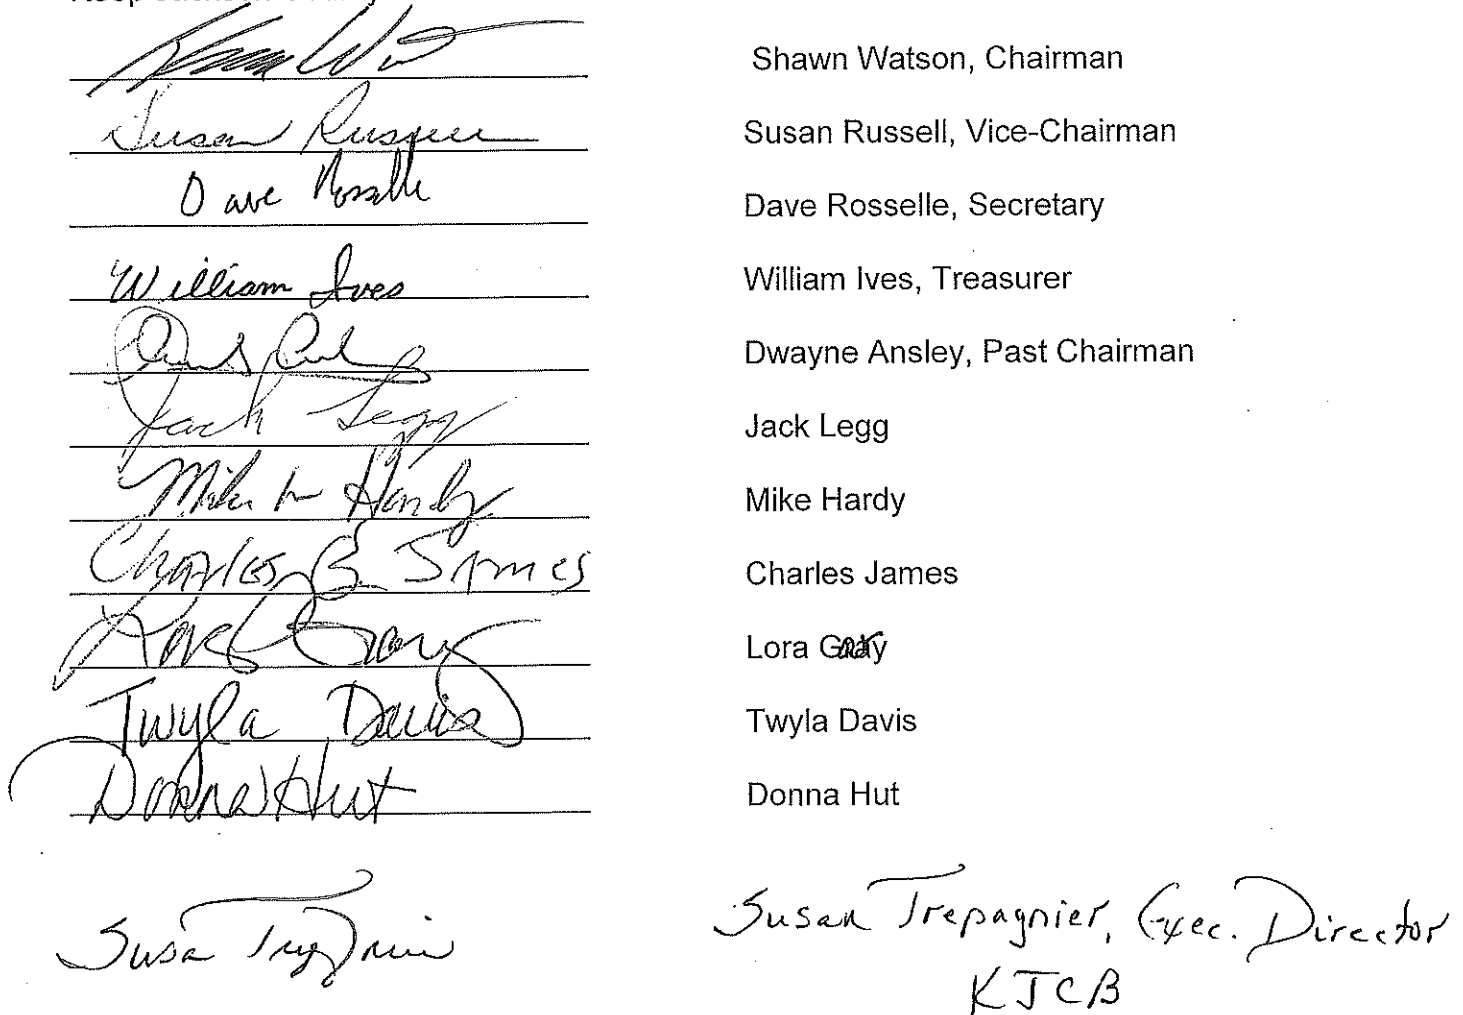 Shawn Watson, Chairman
Susan Russell Susan Russell, Vice-Chairman
Dave Rosselle Dave Rosselle, Secretary
William Ives William Ives, Treasurer
Dwayne Ansley, Past Chairman
Jack Legg Jack Legg
Mike Hardy Mike Hardy
Charles B. James Charles James
Lora Gary Lora Gary
Twyla Davis Twyla Davis
Donna Hut Donna Hut
Susan Trepagnier, Exec. Director
KJCB